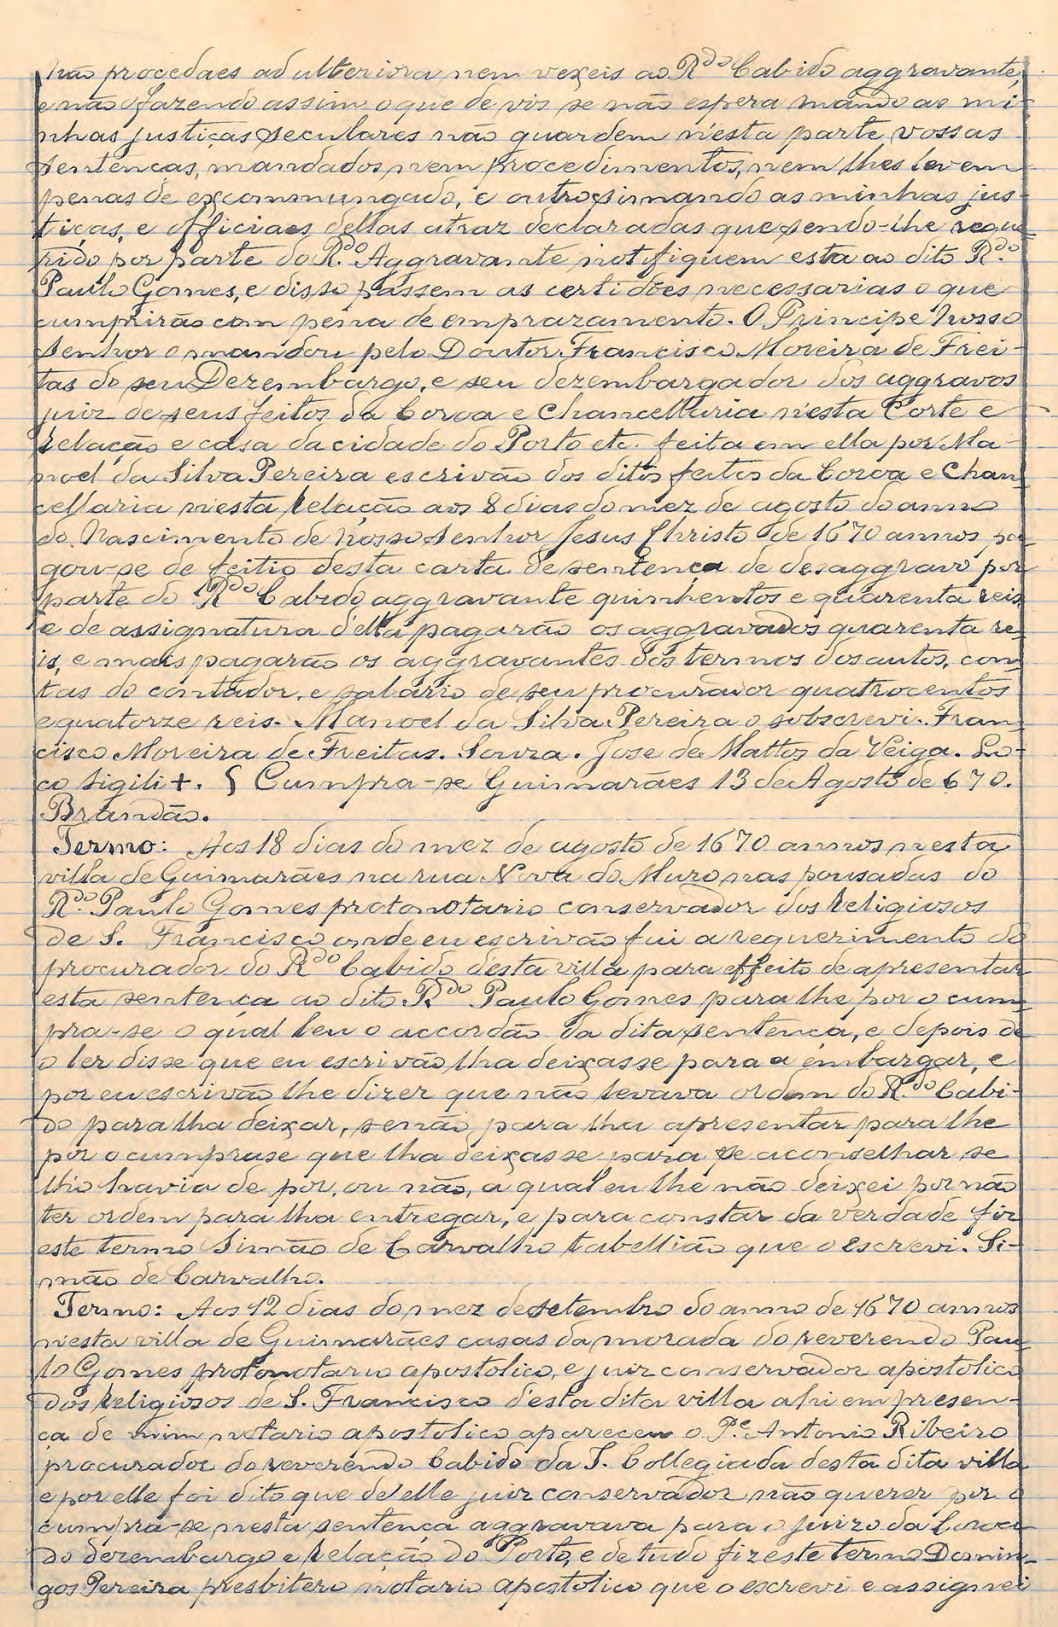 não procedaes ad ulteriora nem vexeis ao R.do Cabido aggravante,
e não o fazendo assim o que de vós se não espera mando as mi-
nhas justiças seculares não guardem n'esta parte vossas
sentenças, mandados, nem procedimentos, nem lhes levem
penas de excommungado, e outrosi mando as minhas jus-
tiças, e officiaes dellas atraz declaradas que sendo-lhe reque-
rido por parte do R.do Aggravante notifiquem esta ao dito R.do
Paulo Gomes, e disso passem as certidões necessarias o que
cumprirão com pena de emprazamento. O Principe Nosso
Senhor o mandou pelo Doutor Francisco Moreira de Frei-
tas do seu Dezembargo, e seu dezembargador dos aggravos
juiz de seus feitos da Coroa e Chancellaria n'esta Corte e
relação e casa da cidade do Porto etc. feita em ella por Ma-
noel da Silva Pereira escrivão dos ditos feitos da Coroa e Chan-
cellaria n'esta relação aos 8 dias do mez de agosto do anno
do Nascimento de Nosso Senhor Jesus Christo de 1670 annos pa-
gou-se de feitio desta carta de sentença de desaggravo por
parte do R.do Cabido aggravante quinhentos e quarenta reis
e de assignatura d'ella pagarão os aggravados quarenta re-
is, e mais pagarão os aggravantes dos termos dos autos, con-
tas do contador, e salario de seu procurador quatrocentos
e quatorze reis. Manoel da Silva Pereira o sobscrevi. Fran-
cisco Moreira de Freitas. Souza. Jose de Mattos da Veiga. Lo-
co sigili +. § Cumpra-se Guimarães 13 de Agosto de 670.
Brandão.
Termo: Aos 18 dias do mez de agosto de 1670 annos nesta
villa de Guimarães na rua Nova do Muro nas pousadas do
R.do Paulo Gomes protonotario conservador dos religiosos
de S. Francisco onde eu escrivão fui a requerimento do
procurador do R.do Cabido desta villa para effeito de apresentar
esta sentença ao dito R.do Paulo Gomes para lhe por o cum-
pra-se o qual leu o accordão da dita sentença, e depois de
o ler disse que eu escrivão lha deixasse para a embargar, e
por eu escrivão lhe dizer que não levava ordem do R.do Cabi-
do para lha deixar, senão para lha apresentar para lhe
pôr o cumprase que lha deixasse para se aconselhar se
lho havia de por, ou não, a qual eu lhe não deixei por não
ter ordem para lha entregar, e para constar da verdade fiz
este termo Simão de Carvalho tabellião que o escrevi. Si-
mão de Carvalho.
Termo: Aos 12 dias do mez de setembro do anno de 1670 annos
n'esta villa de Guimarães casas da morada do reverendo Pau-
lo Gomes protonotario apostolico, e juiz conservador apostolico
dos religiosos de S. Francisco desta dita villa ahi em presen-
ça de mim notario apostolico apareceu o P.e Antonio Ribeiro
procurador do reverendo Cabido da S. Collegiada desta dita villa
e por elle foi dito que delle juiz conservador não querer pôr o
cumpra-se nesta sentença aggravava para o juizo da Coroa
do dezembargo e relação do Porto, e de tudo fiz este termo Domin-
gos Pereira presbitero notario apostolico que o escrevi e assignei